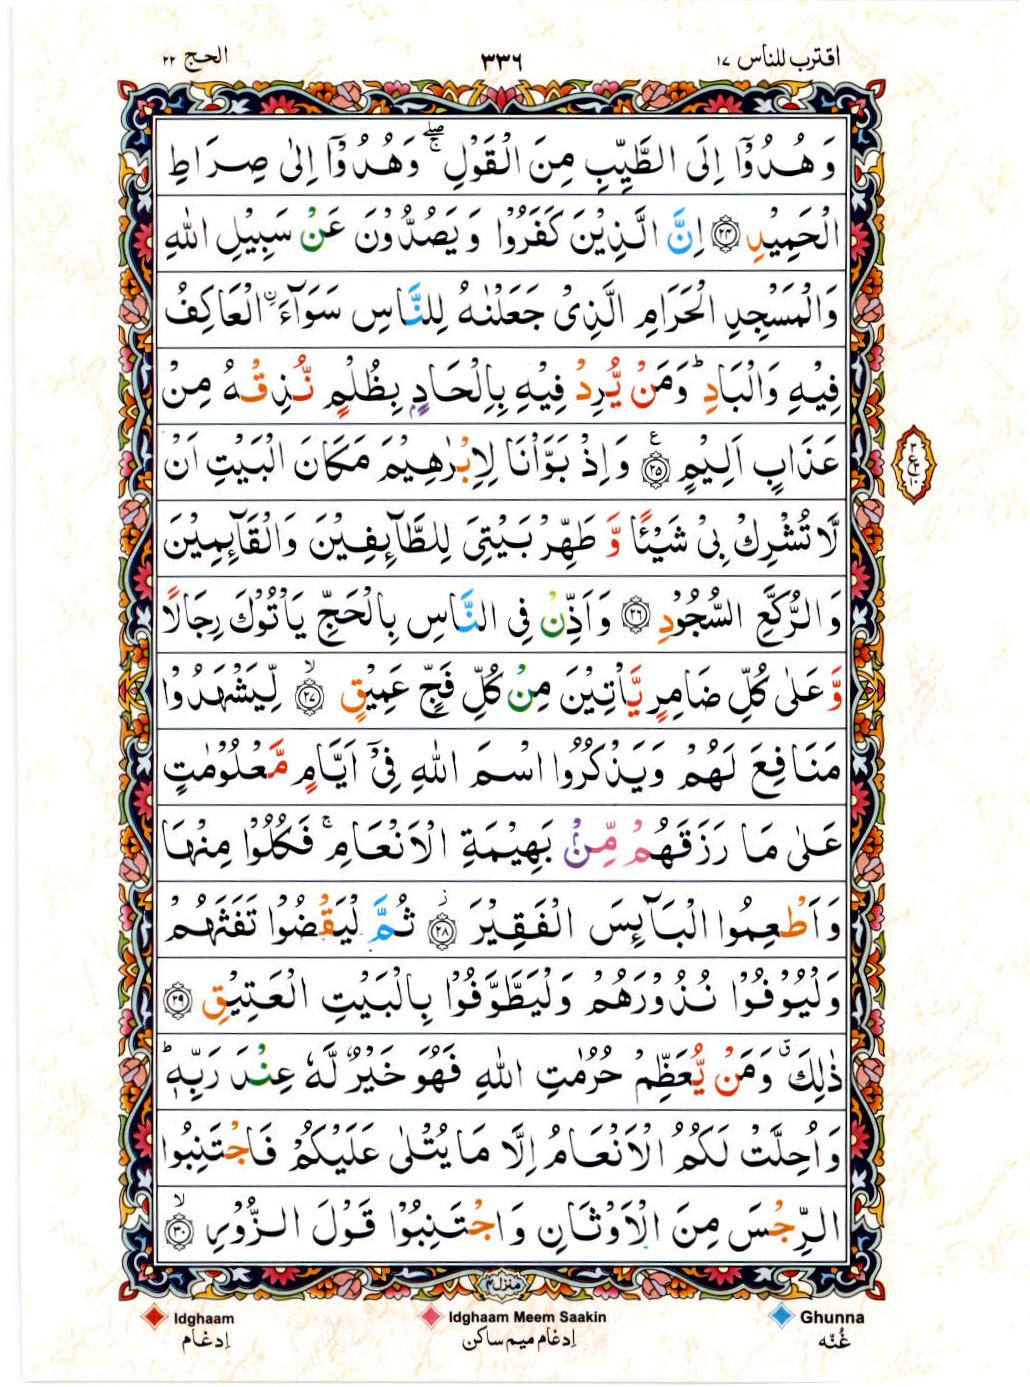 اقترب للناس ١٧ ٣٣٦ الحج ٢٢
وَهُدُوْٓا اِلَى الطَّيِّبِ مِنَ الْقَوْلِ ۚۖ وَهُدُوْٓا اِلٰى صِرَاطِ
الْحَمِيْدِ ﴿٢٤﴾ اِنَّ الَّذِيْنَ كَفَرُوْا وَيَصُدُّوْنَ عَنْ سَبِيْلِ اللّٰهِ
وَالْمَسْجِدِ الْحَرَامِ الَّذِىْ جَعَلْنٰهُ لِلنَّاسِ سَوَآءَ ۨ الْعَاكِفُ
فِيْهِ وَالْبَادِ ؕ وَمَنْ يُّرِدْ فِيْهِ بِاِلْحَادٍۭ بِظُلْمٍ نُّذِقْهُ مِنْ
عَذَابٍ اَلِيْمٍ ﴿٢٥﴾ ع وَاِذْ بَوَّاْنَا لِاِبْرٰهِيْمَ مَكَانَ الْبَيْتِ اَنْ
لَّا تُشْرِكْ بِىْ شَيْئًا وَّطَهِّرْ بَيْتِىَ لِلطَّآئِفِيْنَ وَالْقَآئِمِيْنَ
وَالرُّكَّعِ السُّجُوْدِ ﴿٢٦﴾ وَاَذِّنْ فِى النَّاسِ بِالْحَجِّ يَاْتُوْكَ رِجَالًا
وَّعَلٰى كُلِّ ضَامِرٍ يَّاْتِيْنَ مِنْ كُلِّ فَجٍّ عَمِيْقٍ ۙ﴿٢٧﴾ لِّيَشْهَدُوْا
مَنَافِعَ لَهُمْ وَيَذْكُرُوا اسْمَ اللّٰهِ فِىْٓ اَيَّامٍ مَّعْلُوْمٰتٍ
عَلٰى مَا رَزَقَهُمْ مِّنْۢ بَهِيْمَةِ الْاَنْعَامِ ۚ فَكُلُوْا مِنْهَا
وَاَطْعِمُوا الْبَآئِسَ الْفَقِيْرَ ؗ﴿٢٨﴾ ثُمَّ لْيَقْضُوْا تَفَثَهُمْ
وَلْيُوْفُوْا نُذُوْرَهُمْ وَلْيَطَّوَّفُوْا بِالْبَيْتِ الْعَتِيْقِ ﴿٢٩﴾
ذٰلِكَ ۗ وَمَنْ يُّعَظِّمْ حُرُمٰتِ اللّٰهِ فَهُوَ خَيْرٌ لَّهٗ عِنْدَ رَبِّهٖ ؕ
وَاُحِلَّتْ لَكُمُ الْاَنْعَامُ اِلَّا مَا يُتْلٰى عَلَيْكُمْ فَاجْتَنِبُوا
الرِّجْسَ مِنَ الْاَوْثَانِ وَاجْتَنِبُوْا قَوْلَ الزُّوْرِ ۙ﴿٣٠﴾
منزل ٤
Idghaam Idghaam Meem Saakin Ghunna
إدغام إدغام ميم ساكن غُنّه